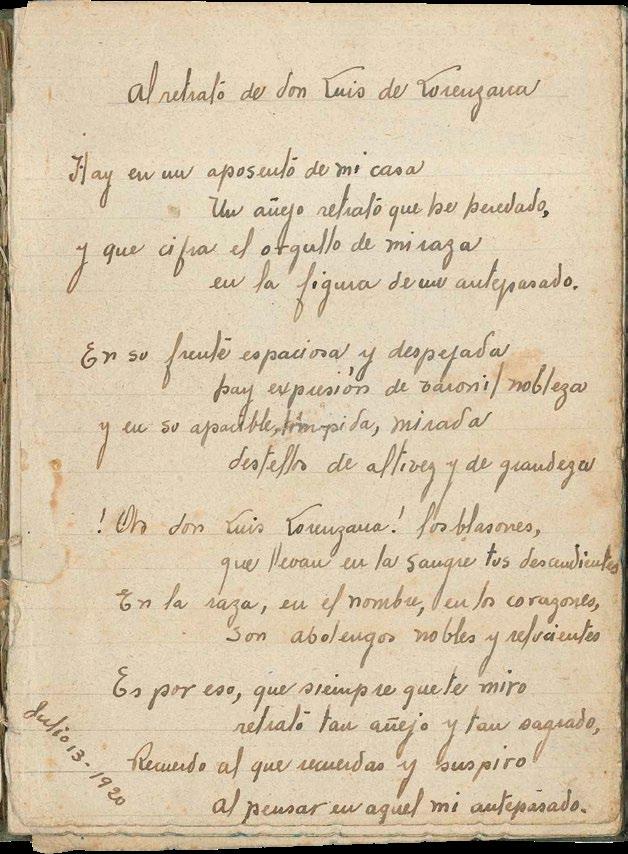 Al retrato de don Luis de Lorenzana
Hay en un aposento de mi casa
Un añejo retrato que he heredado,
y que cifra el orgullo de mi raza
en la figura de un antepasado.
En su frente espaciosa y despejada
hay expresión de varonil nobleza
y en su apacible, límpida, mirada
destellos de altivez y de grandeza
! Oh don Luis Lorenzana! los blasones,
que llevan en la sangre tus descendientes
En la raza, en el nombre, en los corazones,
son abolengos nobles y relucientes
Es por eso, que siempre que te miro
retrato tan añejo y tan sagrado,
Recuerdo al que recuerdas y suspiro
al pensar en aquel mi antepasado.
Julio 13 - 1920